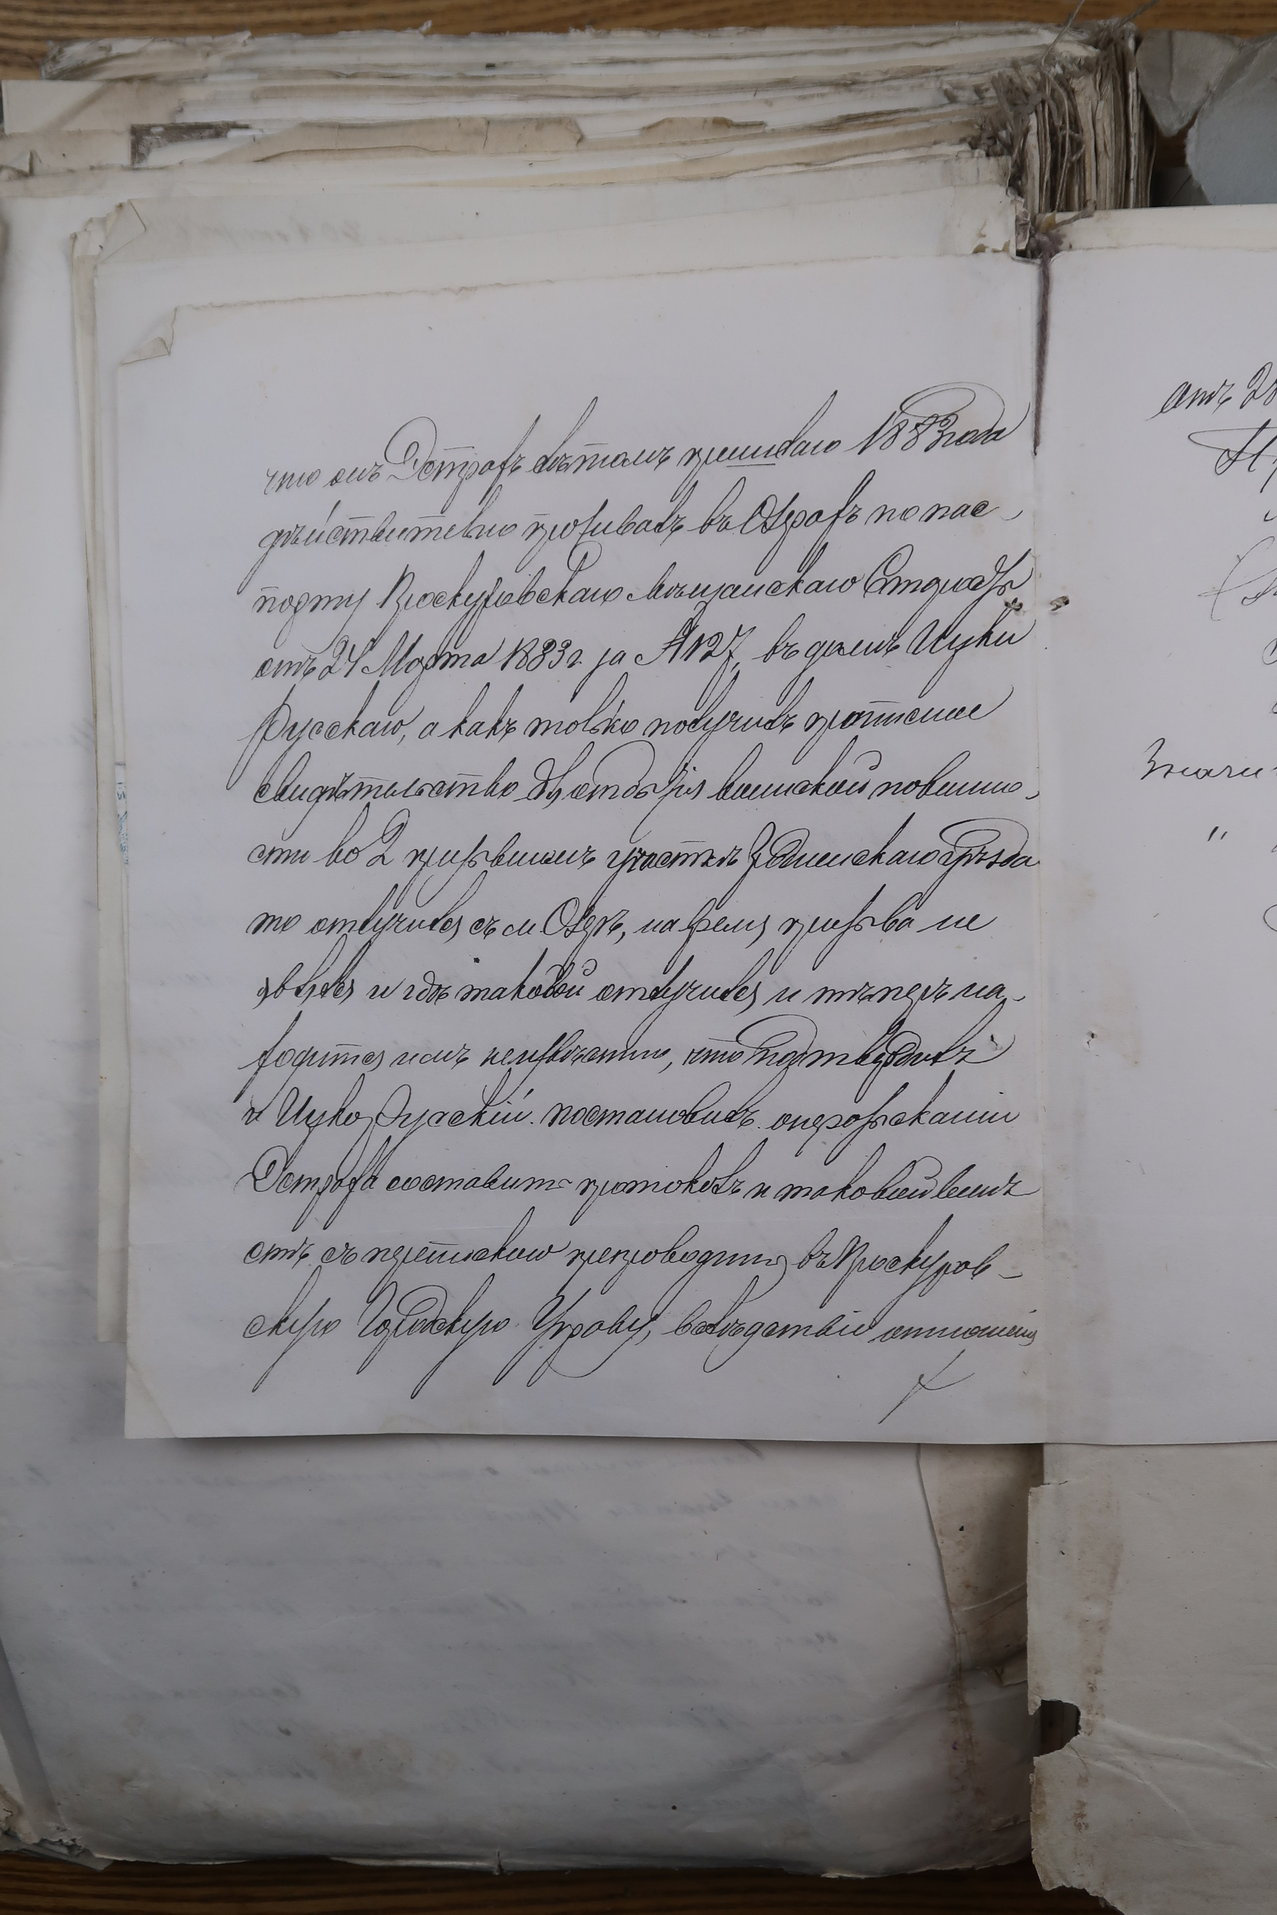 что онъ Островъ лѣтомъ прошлаго 1883 года
дѣйствительно проживалъ въ Озеровѣ по пас-
порту Проскуровскаго Мѣщанскаго Старосты
отъ 24 Марта 1883 г. за №127, въ домѣ Ицки
Русскаго, а какъ только получилъ приписное
свидѣтельство для отбытія воинской повинно-
сти во 2 призывномъ участкѣ уѣзда
то отлучился съ м. Озеръ, на время призыва не
явился и гдѣ таковой отлучился и теперь на-
ходится имъ неизвѣстно, что подтвердилъ
и Ицко Русскій. постановилъ: о нерозысканіи
Острова составить протоколъ и таковой вмѣ-
стѣ съ перепискою препроводить въ Проскуров-
скую Городскую Управу, вслѣдствіе отношенія
отъ 28
Значи
"